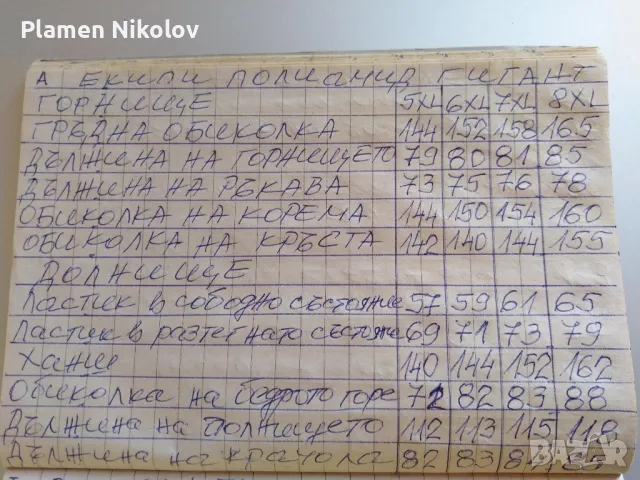 Plamen Nikolov
А ЕКИПИ ПОЛИАМИД ГИГАНТ
ГОРНИЩЕ 5XL 6XL 7XL 8XL
ГРЪДНА ОБИКОЛКА 144 152 158 165
ДЪЛЖИНА НА ГОРНИЩЕТО 79 80 81 85
ДЪЛЖИНА НА РЪКАВА 73 75 76 78
ОБИКОЛКА НА КОРЕМА 144 150 154 160
ОБИКОЛКА НА КРЪСТА 142 140 144 155
ДОЛНИЩЕ
Ластик в сободно състояние 57 59 61 65
Ластик в разтегнато състояние 69 71 73 79
Ханш 140 144 152 162
Обиколка на бедрото горе 72 82 83 88
Дължина на долнището 112 113 115 118
Дължина на крачола 82 83 84 85
BAZAR